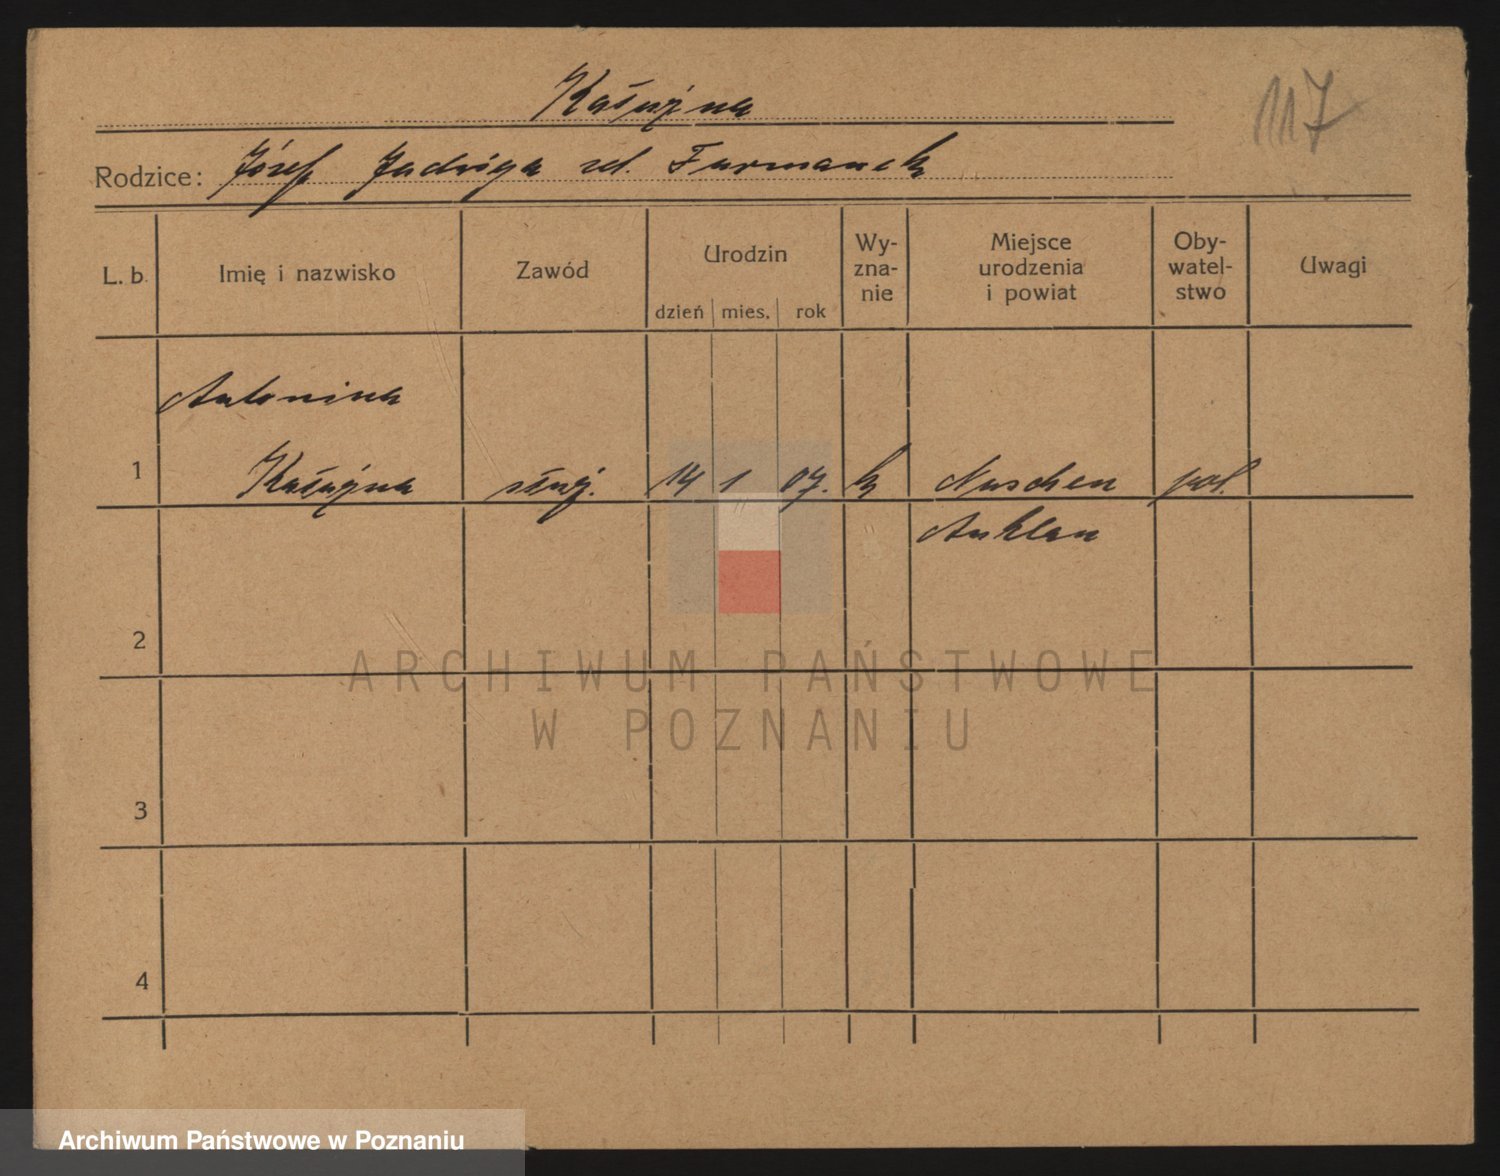 Kałużna
117
Rodzice: Józef Jadwiga zd. Furmanek
L. b.
Imię i nazwisko
Zawód
Urodzin
dzień mies. rok
Wy-
zna-
nie
Miejsce
urodzenia
i powiat
Oby-
watel-
stwo
Uwagi
Antonina
1 Kałużna służ. 14 1 07. k Muschen pol.
Anklam
2
3
4
ARCHIWUM PAŃSTWOWE
W POZNANIU
Archiwum Państwowe w Poznaniu